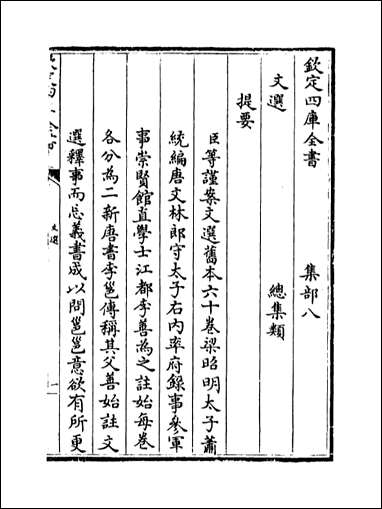 欽定四庫全書 集部八
文選 總集類
提要
臣等謹案文選舊本六十卷梁昭明太子蕭
統編唐文林郎守太子右內率府錄事參軍
事崇賢館直學士江都李善為之註始每卷
各分為二新唐書李邕傳稱其父善始註文
選釋事而忘義書成以問邕邕意欲有所更
文選
一